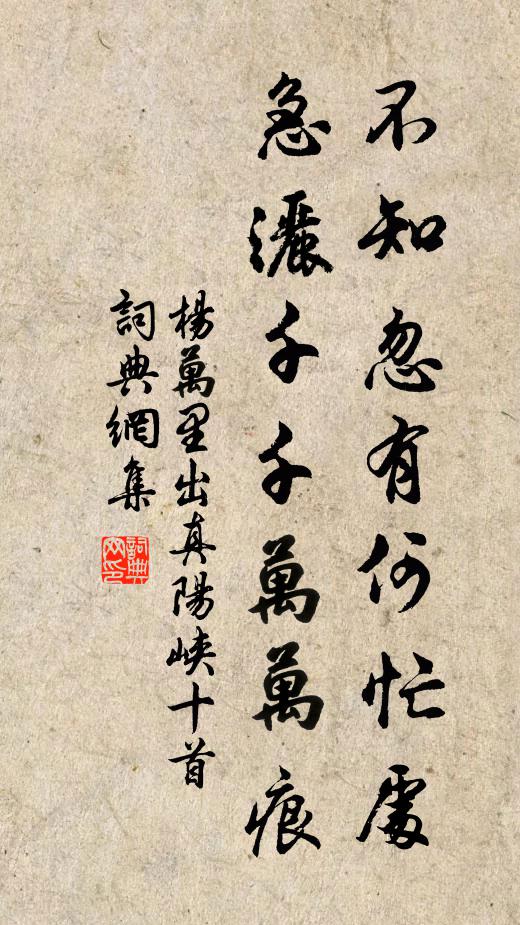 不知忽有何忙處
急灑千千萬萬痕
楊萬里出真陽峽十首
詞典網集
詞典网印